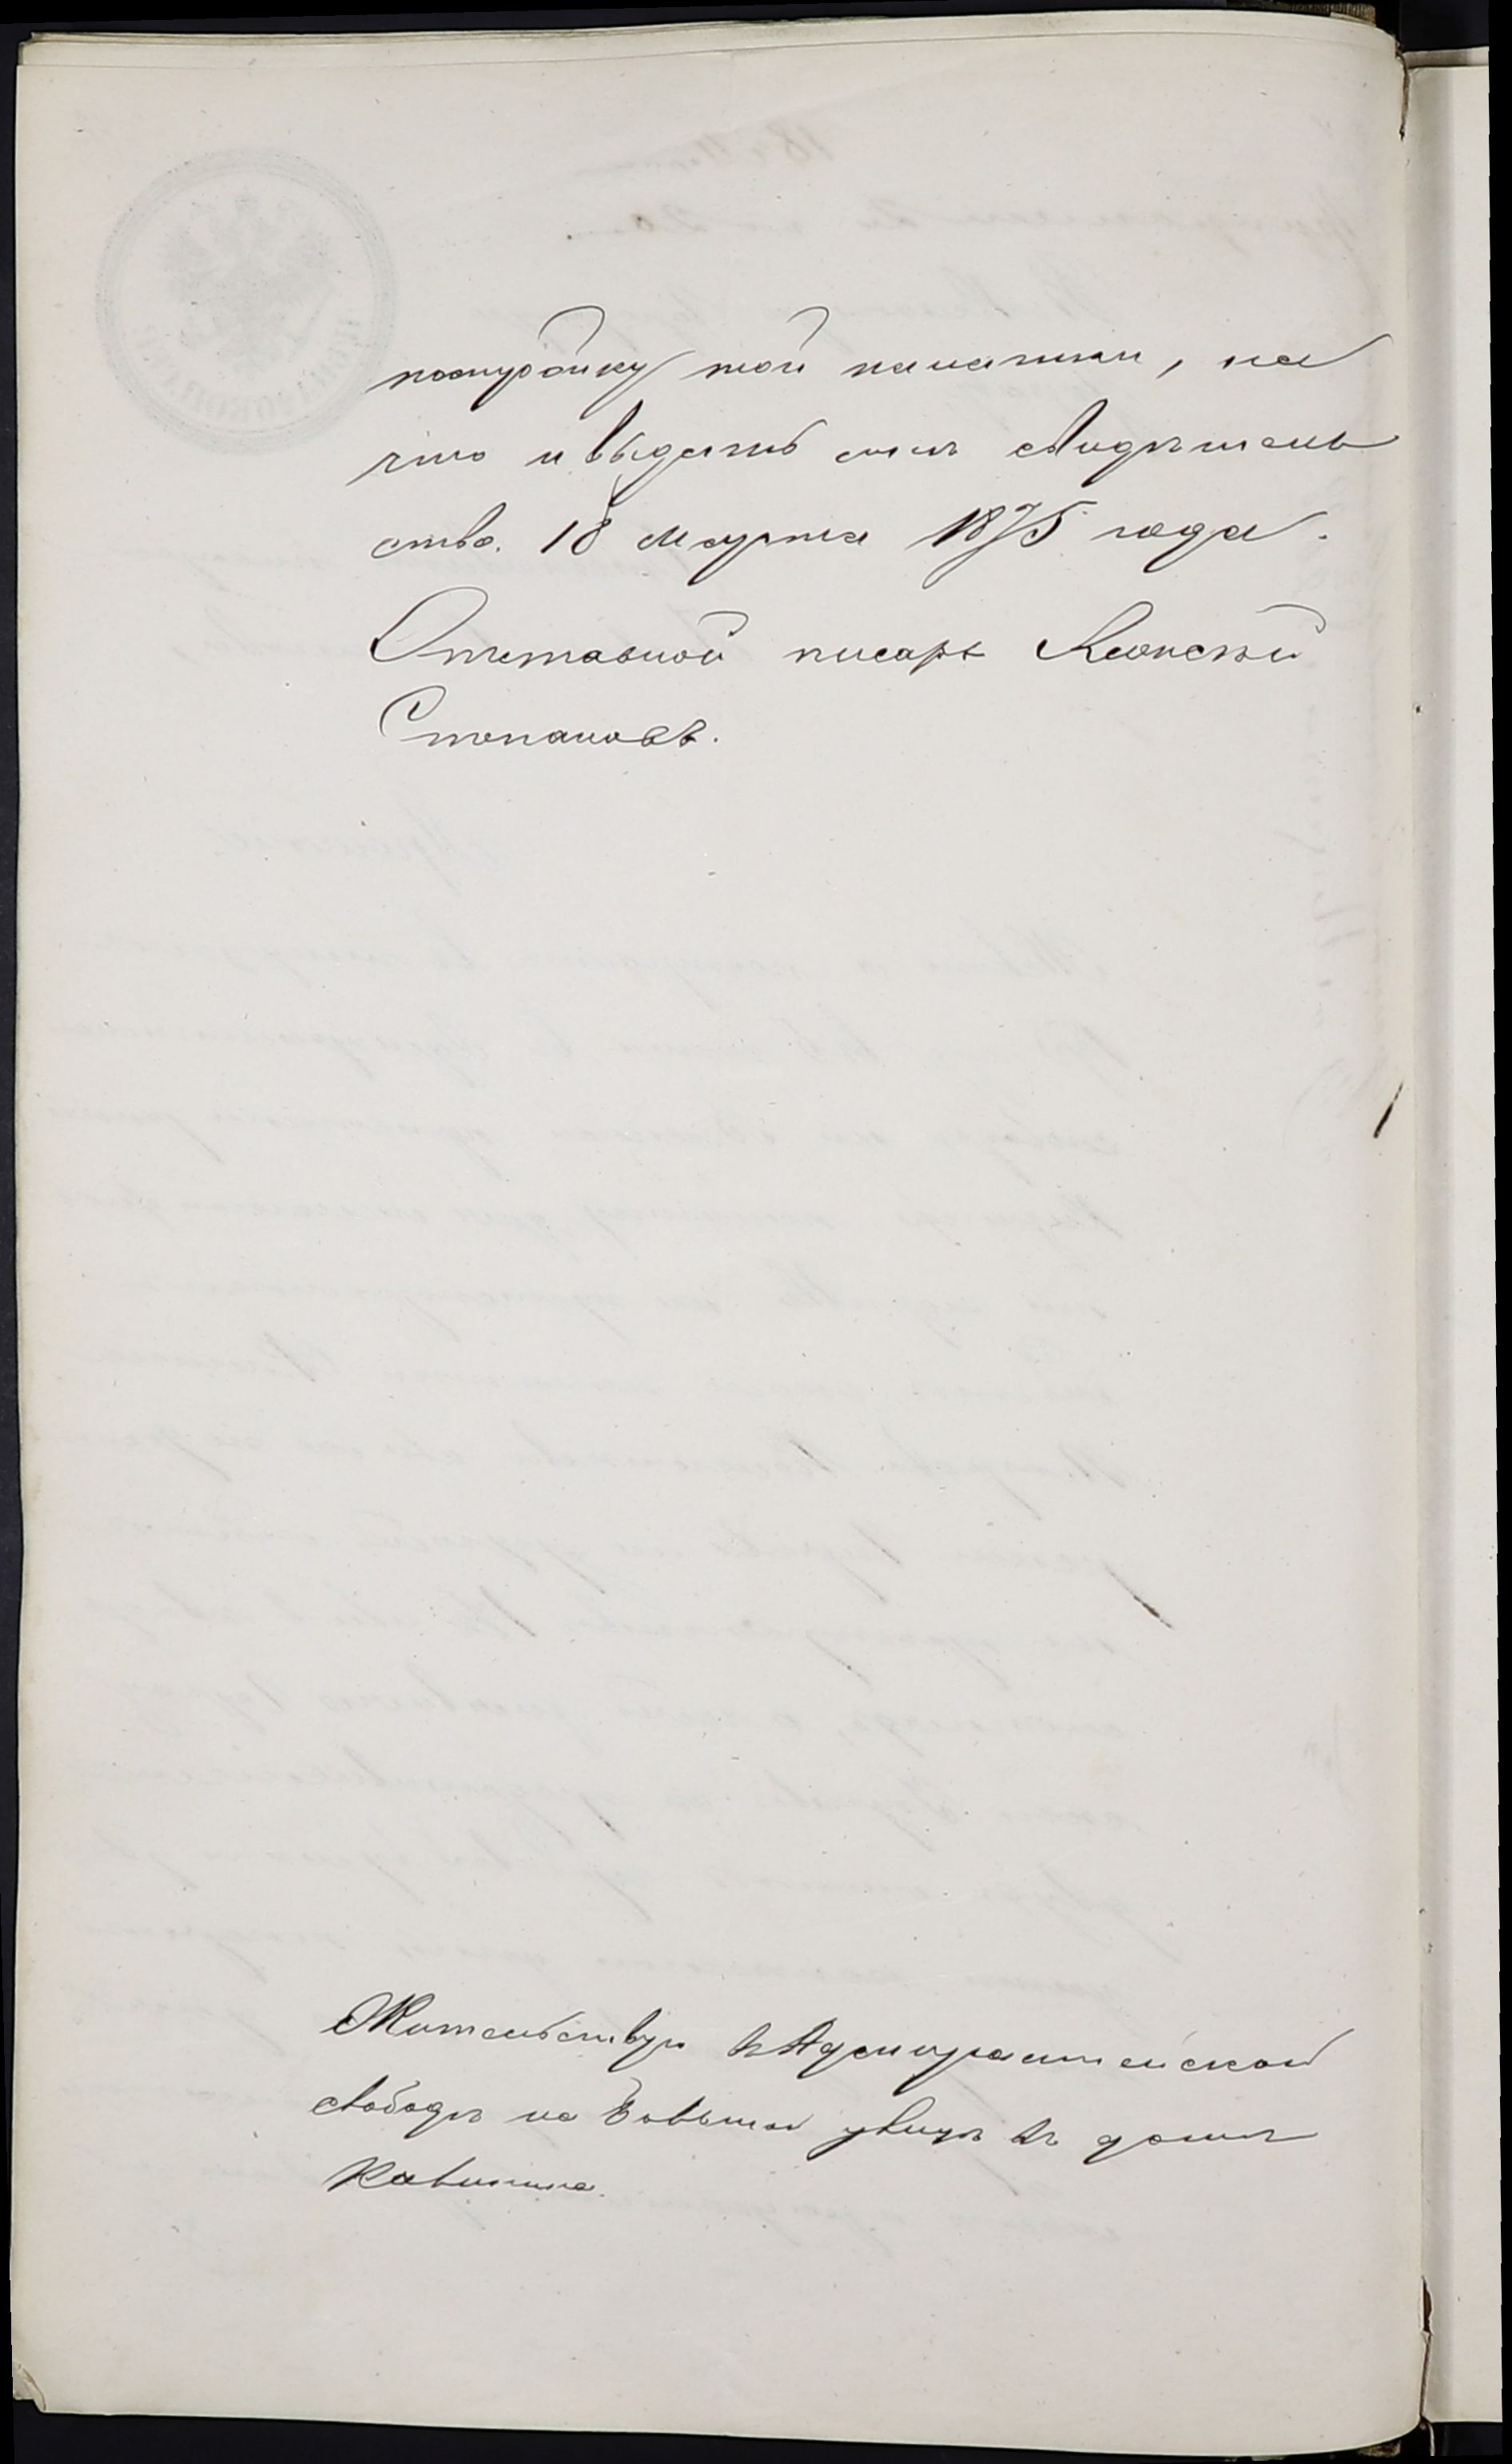 постройку той палатки, на
что и выдать мнѣ свидѣтель
ство. 18 Марта 1875 года.
Отставной писарь
Степановъ.
Жительствую въ Адмиралтейской
слободѣ на Большой улицѣ въ домѣ
Калинина.